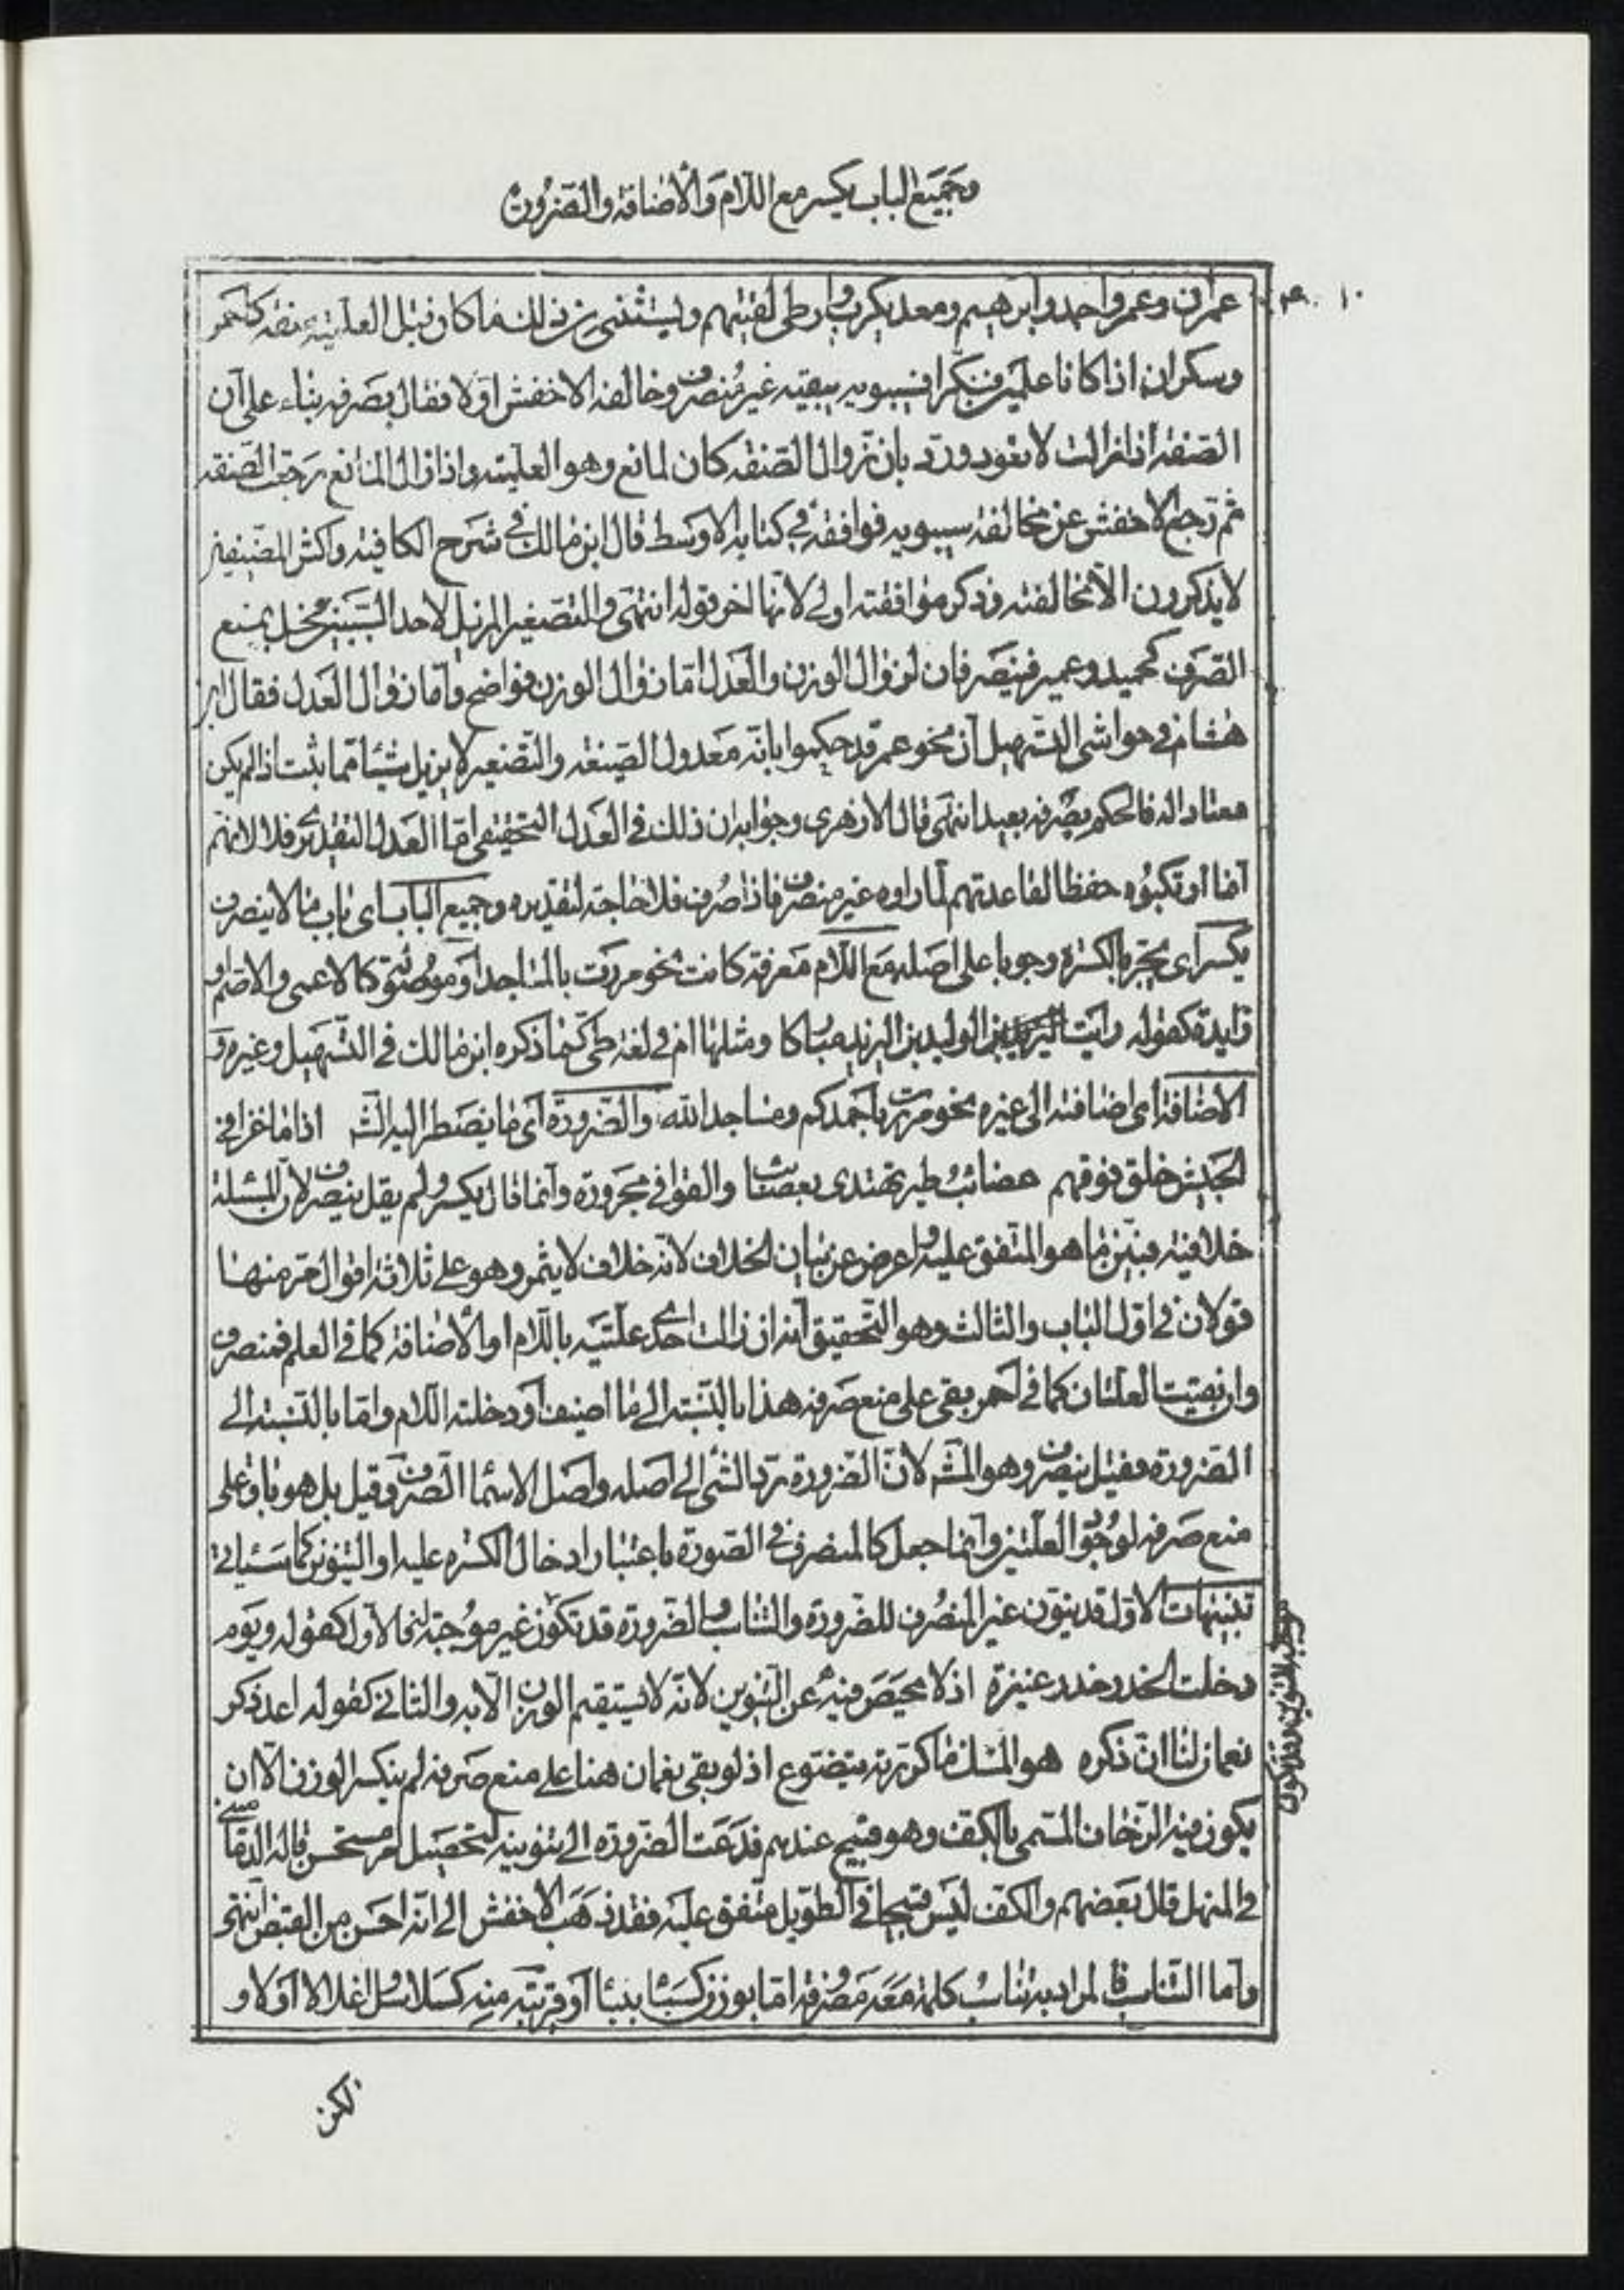 وجميع الباب يكسر مع اللام والاضافة والضرورة
عمران وعمر واحمد وابرهيم ومعديكرب وارطى لقيتهم ويستثنى من ذلك ما كان قبل العلمية صفة كاحمر
وسكران اذا كانا علمين فنكرا فسيبويه يبقيه غير منصرف وخالفه الاخفش اولا فقال بصرفه بناء على ان
الصفة اذا زالت لا تعود ورد بان زوال الصفة كان لمانع وهو العلمية واذا زال المانع رجعت الصفة
ثم رجع الاخفش عن مخالفة سيبويه فوافقه في كتابه الاوسط قال ابن مالك في شرح الكافية واكثر المصنفين
لا يذكرون الا مخالفته وذكر موافقته اولى لانها اخر قوله انتهى والتصغير المزيل لاحد السببين مخل بمنع
الصرف كحميد وعمير فينصرفان لزوال الوزن والعدل اما زوال الوزن فواضح واما زوال العدل فقال ابن
هشام في حواشى التسهيل ان نحو عمر قد حكموا بانه معدول الصيغة والتصغير لا يزيل شيئا مما ثبت اذ لم يكن
معتادا له فالحكم بصرفه بعيد انتهى قال الازهرى وجوابه ان ذلك في العدل التحقيقى اما العدل التقديرى فلا لانهم
انما ارتكبوه حفظا لقاعدتهم لما راوه غير منصرف فاذا صرف فلا حاجة لتقديره وجميع الباب اى باب ما لا ينصرف
يكسر اى يجر بالكسرة وجوبا على اصله مع اللام معرفة كانت نحو مررت بالمساجد او موصولة كالاعمى والاصم او
زايدة كقوله رايت الوليد بن اليزيد مباركا ومثلها ام في لغة طى كما ذكره ابن مالك في التسهيل وغيره و
الاضافة اى اضافته الى غيره نحو مررت باحمدكم ومساجد الله والضرورة اى ما يضطر اليه الشـ اذا ما غزا في
الجيش حلق فوقهم عصائب طير تهتدى بعصائب والقوافي مجرورة وانما قال يكسر ولم يقل ينصرف لان المسئلة
خلافية فبين ما هو المتفق عليه واعرض عن بيان الخلاف لانه خلاف لا يثمر وهو على ثلاثة اقوال مر منها
قولان في اول الباب والثالث وهو التحقيق انه ان زالت احدى علتيه باللام او الاضافة كما في العلم فمنصرف
وان بقيت العلتان كما في احمر بقى على منع صرفه هذا بالنسبة الى ما اضيف او دخلته اللام واما بالنسبة الى
الضرورة فقيل ينصرف وهو المشـ لان الضرورة ترد الشى الى اصله واصل الاسما الصرف وقيل بل هو باق على
منع صرفه لوجود العلتين وانما جعل كالمنصرف في الصورة باعتبار ادخال الكسرة عليه او التنوين كما سياتى
تنبيهات الاول قد ينون غير المنصرف للضرورة والتناسب والضرورة قد تكون غير موجبة فالاول كقوله ويوم
دخلت الخدر خدر عنيزة اذ لا محيص فيه عن التنوين لانه لا يستقيم الوزن الا به والثانى كقوله اعد ذكر
نعمان لنا ان ذكره هو المسك ما كررته يتضوع اذ لو بقى نعمان هنا على منع صرفه لم ينكسر الوزن الا ان
يكون فيه الزحاف المسمى بالكف وهو قبيح عندهم فدعت الضرورة الى تنوينه لتحصيل امر مستحسن قاله الدمامينى
في المنهل قال بعضهم والكف ليس قبيحا في الطويل متفق عليه فقد ذهب الاخفش الى انه احسن من القبض انتهى
واما التناسب فالمراد به تناسب كلمة معه مصروفة اما بوزن كسبأ بنبأ او قريبة منه كسلاسل واغلالا اولا و
لكن